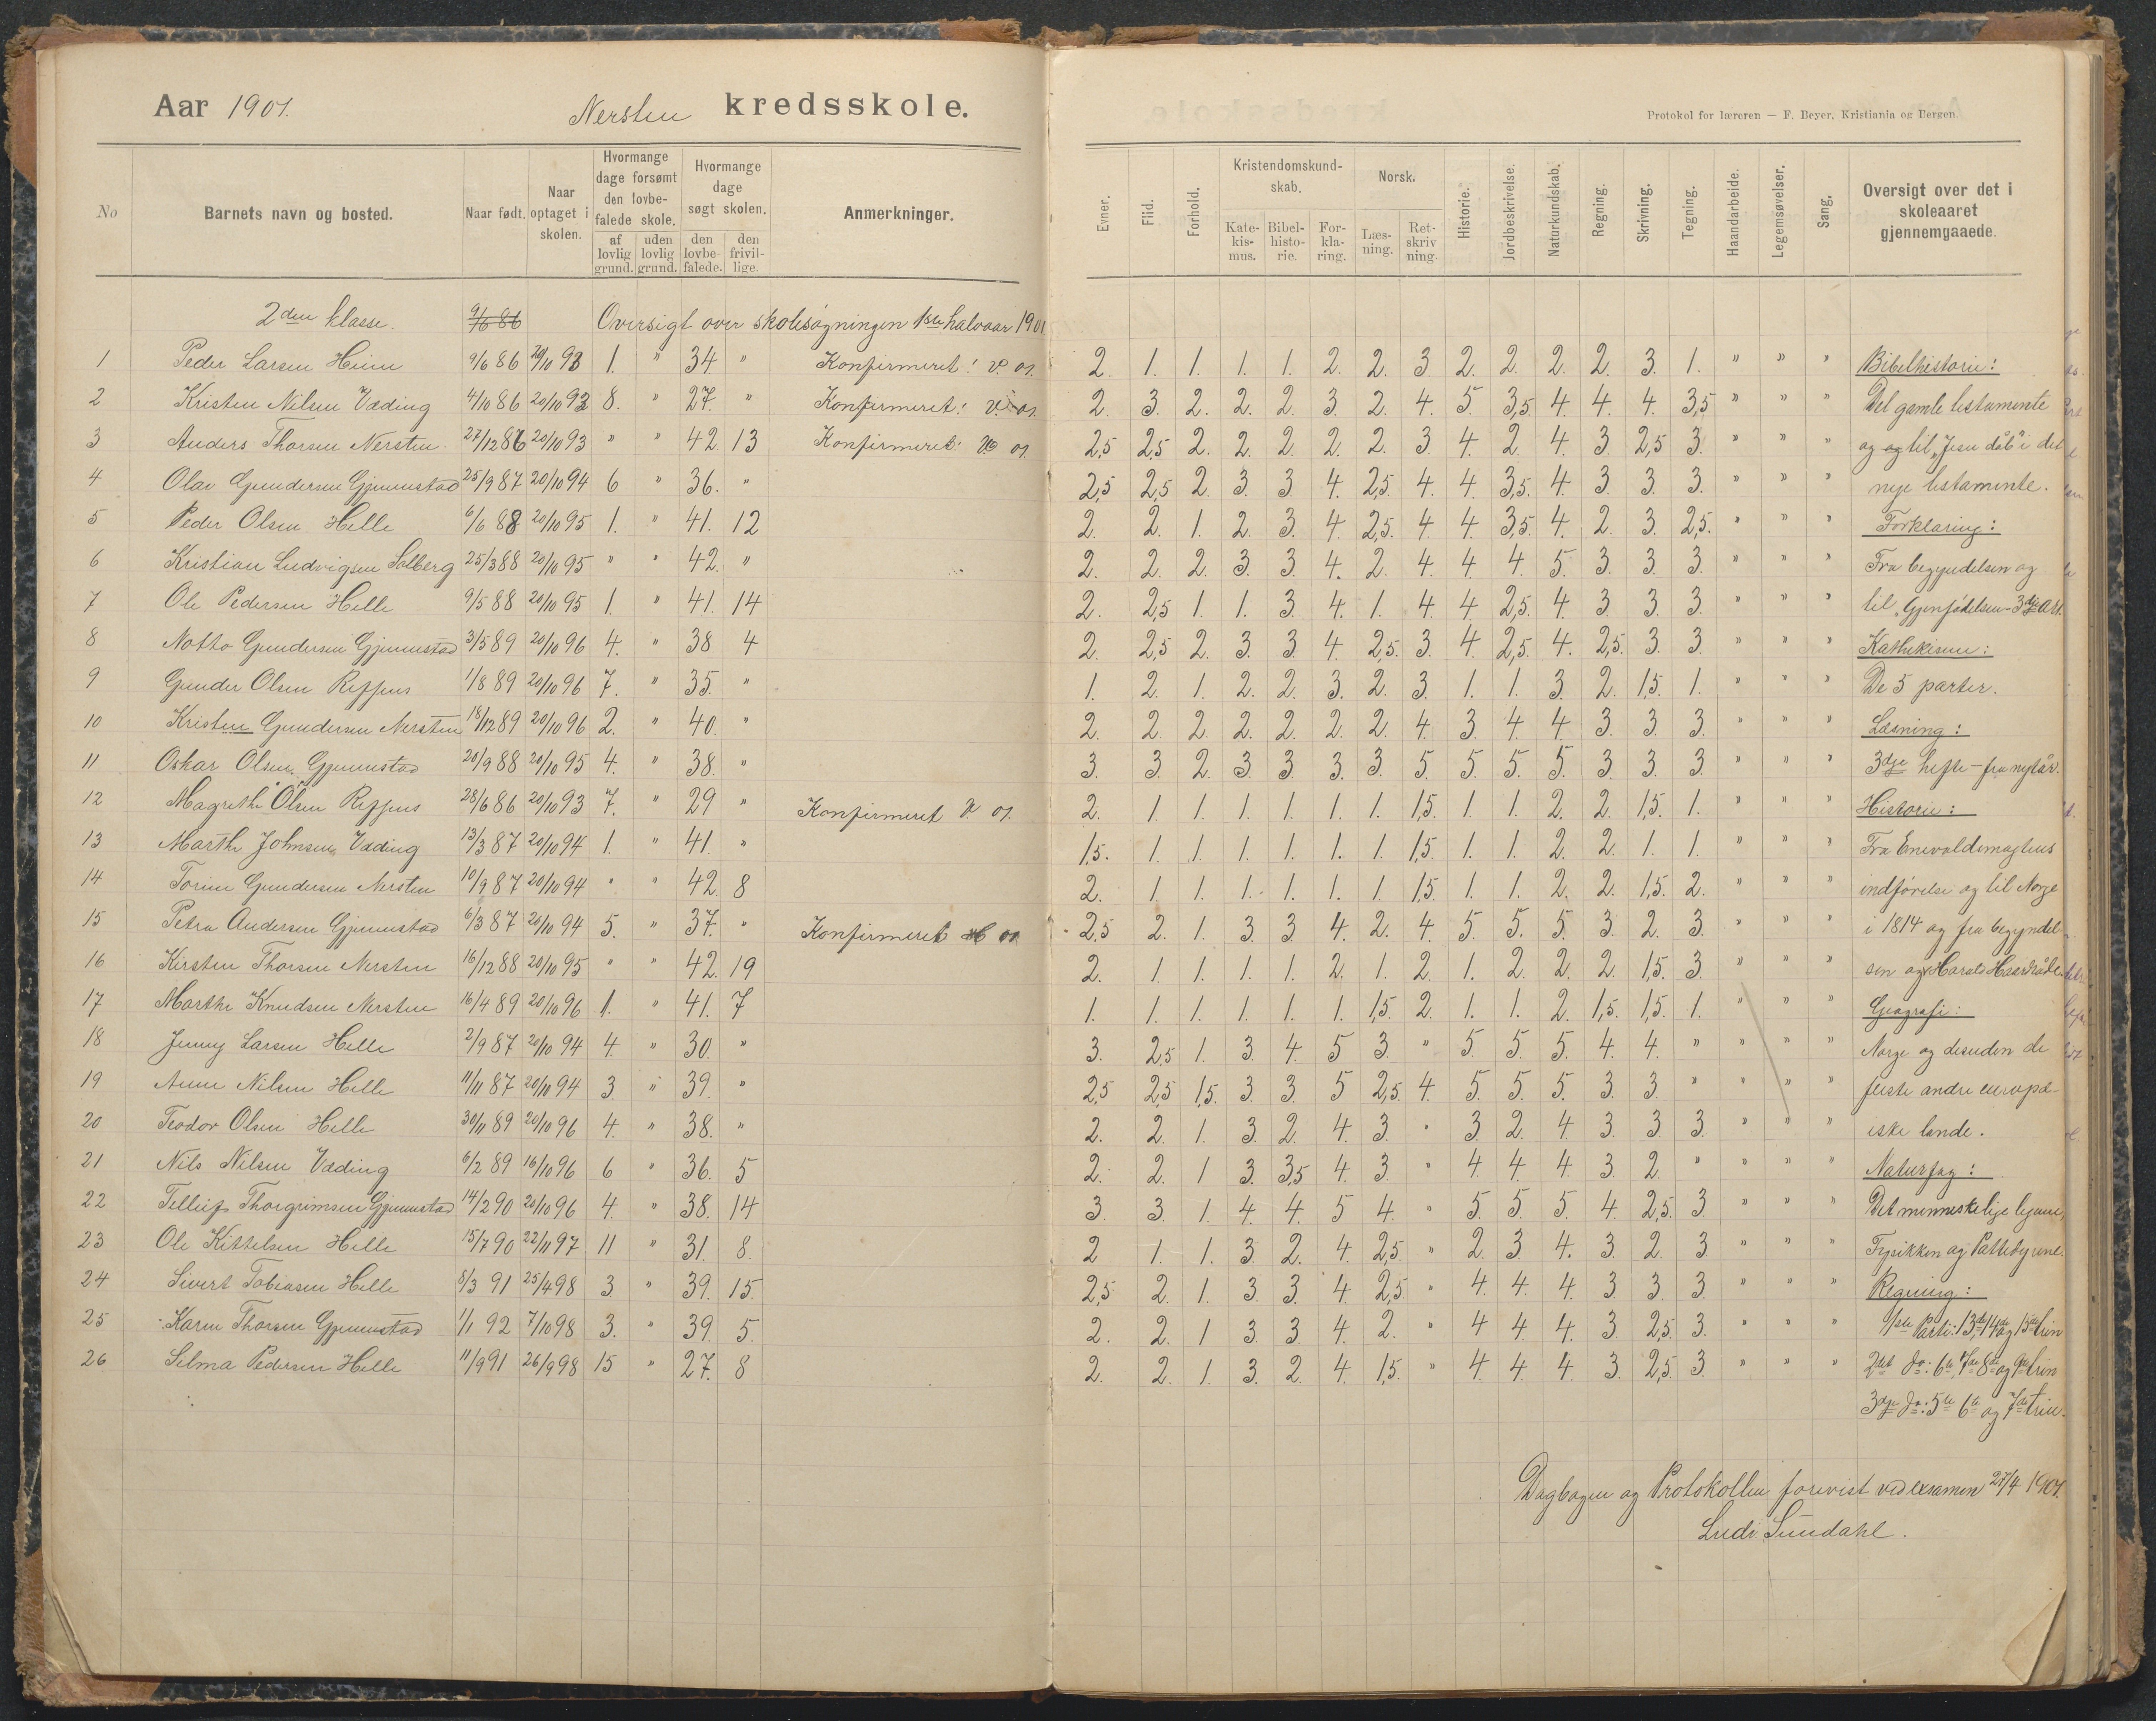 Aar 1901. Nersten kredsskole.
No
Barnets navn og bosted.
Naar født.
Naar optaget i skolen.
Hvormange dage forsømt den lovbefalede skole.
af lovlig grund.
uden lovlig grund.
Hvormange dage søgt skolen.
den lovbefalede.
den frivillige.
Anmerkninger.
2den klasse. 9/6 86 Oversigt over skolesøgningen 1ste halvaar 1901
1 Peder Larsen Heim 9/6 86 20/10 93 1. " 34 " Konfirmeret: V. 01.
2 Kristen Nilsen Væding 4/10 86 20/10 93 8. " 27. " Konfirmeret: V. 01.
3 Anders Thorsen Nersten 27/12 86 20/10 93 " " 42 13 Konfirmeret: 01.
4 Olav Gundersen Gjennestad 25/9 87 20/10 94 6 " 36. "
5 Peder Olsen Helle 6/6 88 20/10 95 1. " 41. 12
6 Kristian Ludvigsen Solberg 25/3 88 20/10 95 " " 42. "
7 Ole Pedersen Helle 9/5 88 20/10 95 1. " 41. 14
8 Notto Gundersen Gjennestad 3/5 89 20/10 96 4. " 38 4
9 Gunder Olsen Reffnes 1/8 89 20/10 96 7. " 35. "
10 Kristen Gundersen Nersten 18/12 89 20/10 96 2. " 40. "
11 Oskar Olsen Gjennestad 20/9 88 20/10 95 4. " 38. "
12 Magrethe Olsen Reffnes 28/6 86 20/10 93 7. " 29 " Konfirmeret 01.
13 Marthe Johnsen Væding 13/3 87 20/10 94 1. " 41. "
14 Torine Gundersen Nersten 10/9 87 20/10 94 " " 42. 8
15 Petra Andersen Gjennestad 6/3 87 20/10 94 5. " 37. " Konfirmeret 01
16 Kirsten Thorsen Nersten 16/12 88 20/10 95 " " 42. 19
17 Marthe Knudsen Nersten 16/4 89 20/10 96 1. " 41. 7
18 Jenny Larsen Helle 2/9 87 20/10 94 4. " 30. "
19 Anne Nilsen Helle 11/11 87 20/10 94 3 " 39. "
20 Teodor Olsen Helle 30/11 89 20/10 96 4. " 38. "
21 Nils Nilsen Væding 6/2 89 16/10 96 6 " 36. 5
22 Tellef Thorgrimsen Gjennestad 14/2 90 20/10 96 4. " 38. 14
23 Ole Kittelsen Helle 15/7 90 22/11 97 11 " 31. 8.
24 Sivert Tobiasen Helle 8/3 91 25/4 98 3 " 39. 15.
25 Karen Thorsen Gjennestad 1/1 92 7/10 98 3. " 39. 5.
26 Selma Pedersen Helle 11/9 91 26/9 98 15 " 27. 8
Protokol for læreren — F. Beyer, Kristiania og Bergen.
Evner.
Flid.
Forhold.
Kristendomskundskab.
Katekismus.
Bibelhistorie.
Forklaring.
Norsk.
Læsning.
Retskrivning.
Historie.
Jordbeskrivelse.
Naturkundskab.
Regning.
Skrivning.
Tegning.
Haandarbeide.
Legemsøvelser.
Sang.
Oversigt over det i skoleaaret gjennemgaaede.
2. 1. 1. 1. 1. 2. 2. 3. 2. 2. 2. 2. 3. 1. " " " Bibelhistorie:
2. 3. 2. 2. 2. 3. 2. 4. 5. 3,5. 4. 4. 4. 3,5 " " " Det gamle testamente
2,5 2,5 2. 2. 2. 2. 2. 3. 4. 2. 4. 3. 2,5 3. " " " og og til "Jesu dåb" i det
2,5 2,5 2. 3. 3. 4. 2,5. 4. 4. 3,5. 4. 3. 3. 3. " " " nye testamente.
2. 2. 1. 2. 3. 4. 2,5. 4. 4. 3,5. 4. 2. 3. 2,5. " " " Forklaring:
2. 2. 2. 3. 3. 4. 2. 4. 4. 4 5. 3. 3. 3. " " " Fra begyndelsen og
2. 2,5 1. 1. 3. 4. 1. 4. 4. 2,5. 4. 3. 3. 3. " " " til "Gjenfødelsen-3dje Art.
2. 2,5 2. 3. 3. 4. 2,5. 3. 4. 2,5. 4. 2,5. 3. 3. " " " Kathekisme:
1. 2. 1. 2. 2. 3. 2. 3. 1. 1. 3. 2. 1,5. 1. " " " De 5 parter.
2. 2. 2. 2. 2. 2. 2. 4. 3. 4. 4. 3. 3. 3. " " " Læsning:
3. 3. 2. 3. 3. 3. 3. 5. 5. 5. 5. 3. 3. 3. " " " 3dje hefte - fra nytår.
2. 1. 1. 1. 1. 1. 1. 1,5. 1. 1. 2. 2. 1,5. 1. " " " Historie:
1,5. 1. 1. 1. 1. 1. 1. 1,5. 1. 1. 2. 2. 1. 1. " " " Fra Enevoldsmagtens
2. 1. 1. 1. 1. 1. 1. 1,5. 1. 1. 2. 2. 1,5. 2. " " " indførelse og til Norge
2,5 2. 1. 3. 3. 4. 2. 4. 5. 5. 5. 3. 2. 3. " " " i 1814 og fra begyndel-
2. 1. 1. 1. 1. 2. 1. 2. 1. 2. 2. 2. 1,5. 3. " " " sen og Harald Haardråde
1. 1. 1. 1. 1. 1. 1,5. 2. 1. 1. 2. 1,5. 1,5. 1. " " " Geografi:
3. 2,5 1. 3. 4. 5 3. " 5. 5. 5. 4. 4. " " " " Norge og desuden de
2,5 2,5 1,5. 3. 3. 5 2,5. 4. 5. 5. 5. 3. 3. " " " " fleste andre europæ-
2. 2. 1. 3. 2. 4. 3. " 3 2. 4. 3. 3. 3. " " " iske lande.
2. 2. 1 3. 3,5 4. 3. " 4. 4. 4. 3. 2 " " " " Naturfag:
3. 3. 1. 4. 4. 5 4. " 5. 5. 5. 4. 2,5. 3 " " " Det menneskelige legeme,
2 1. 1. 3. 2. 4. 2,5. " 2. 3. 4. 3. 2. 3 " " " Fysikken og Pattedyrene.
2,5 2. 1. 3. 3. 4. 2,5 " 4. 4. 4. 3. 3. 3. " " " Regning:
2. 2. 1 3. 3. 4. 2. " 4 4. 4. 3. 2,5. 3. " " " 1ste Parti: 13de, 14de og 15de trin
2. 2. 1. 3. 2. 4. 1,5. " 4. 4. 4. 3. 2,5. 3 " " " 2det do: 6te, 7de 8de og 9de trin
3dje do: 5te 6te og 7de trin.
Dagbogen og Protokollen forevist ved examen 27/4 1901.
Ludv. Sundahl.